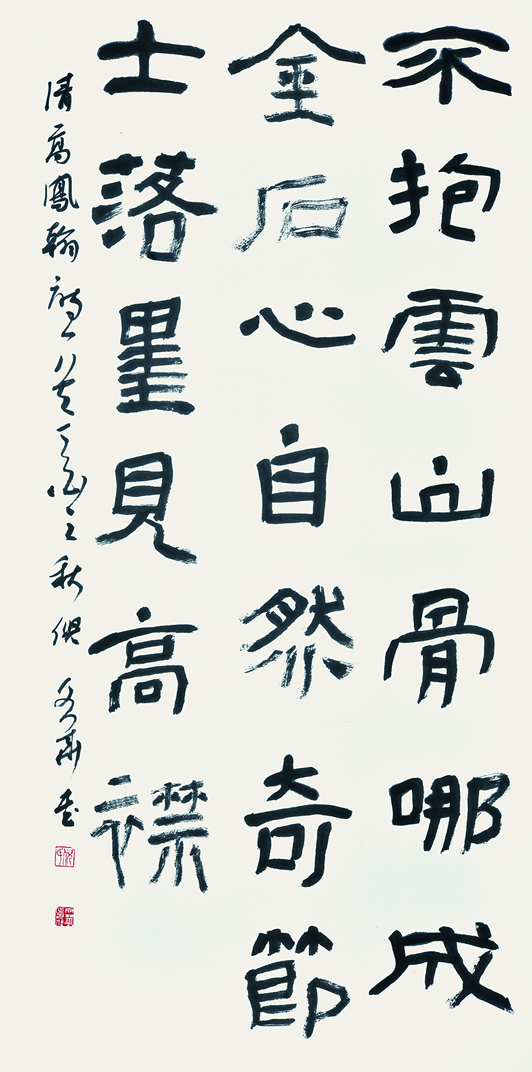 不抱雲山骨哪成
金石心自然奇節
士落墨見高襟
清高鳳翰
秋